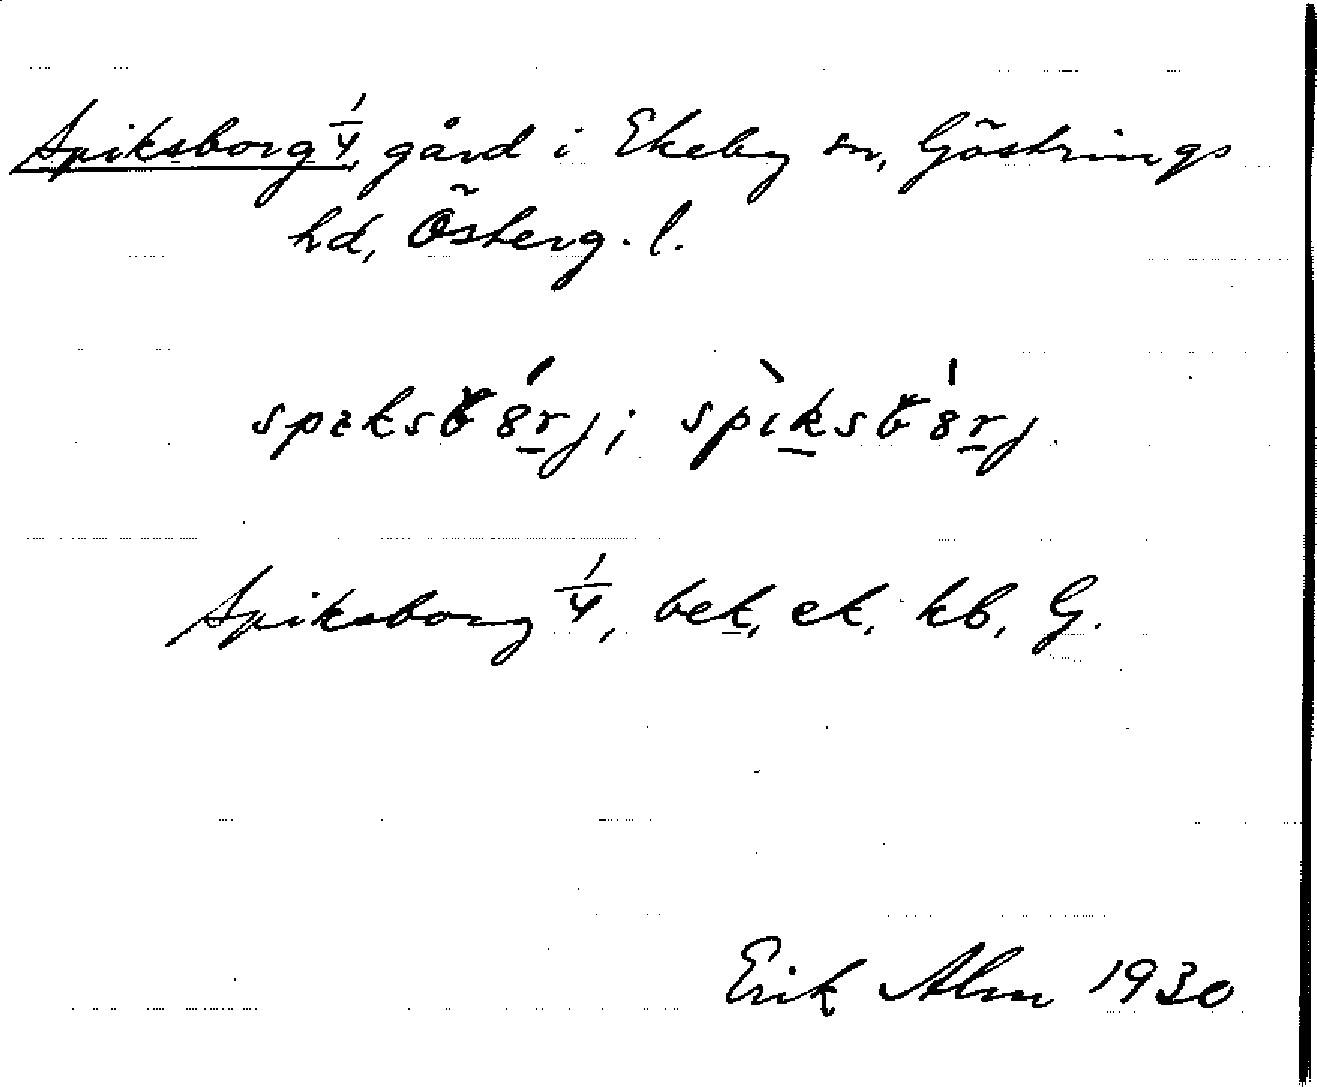 Spiksborg 1/4, gård i Ekeby sn, Göstrings
hd, Österg. l.
spiksbo̱rj; spiksborj.
Spiksborg 1/4, bek, ek, kb, G.
Erik Alm 1930